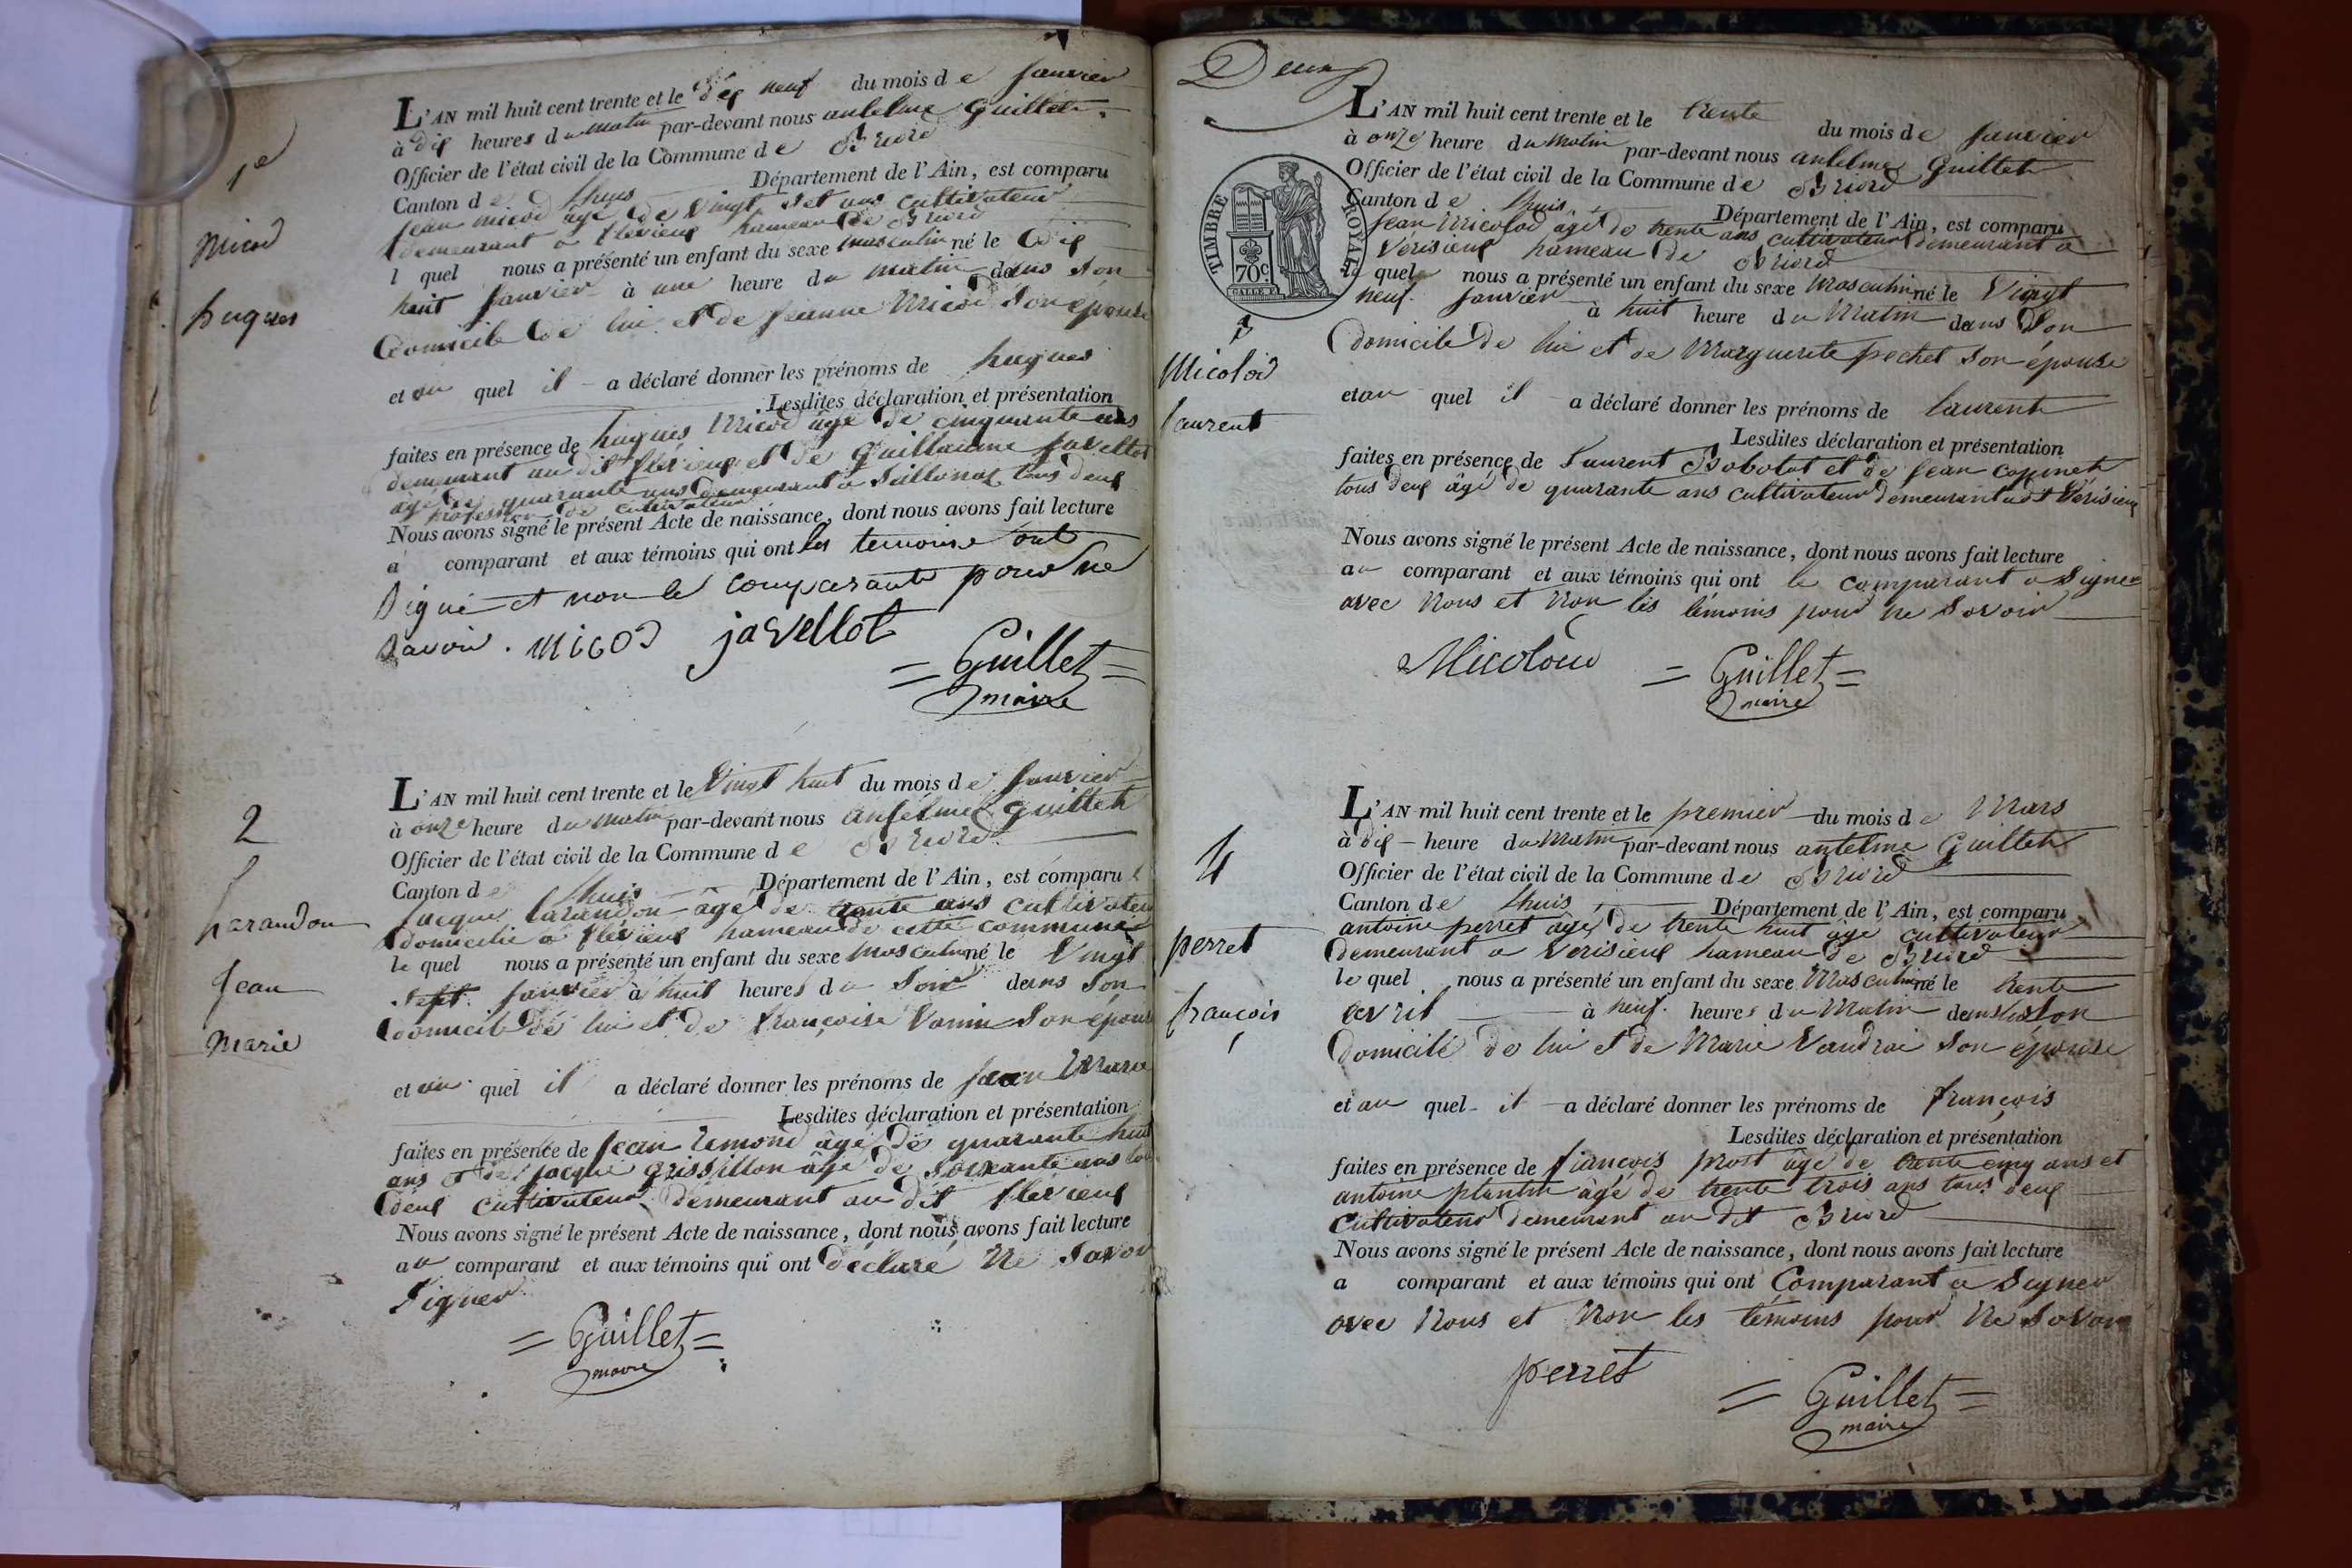 1e
Micod
hugues
L'AN mil huit cent trente et le dix neuf du mois de janvier
à dix heures du matin par-devant nous antelme Guillet
Officier de l'état civil de la Commune de Briord
Canton de Lhuis Département de l'Ain, est comparu
jean micod âgé de vingt set ans cultivateur
demeurant a flévieux hameau de Briord
l quel nous a présenté un enfant du sexe masculin né le dix
huit janvier à une heure du matin dans son
domicile de lui et de jeanne Micod son épouse
et au quel il a déclaré donner les prénoms de hugues
Lesdites déclaration et présentation
faites en présence de hugues Micod âgé de cinquante ans
demeurant au dit flévieux et de Guillaume javellot
âgé de quarante ans demeurant a Sillonaz tous deux
profession de cultivateur
Nous avons signé le présent Acte de naissance, dont nous avons fait lecture
a comparant et aux témoins qui ont les temoins ont
signé et non le comparant pour ne
savoir. micod javellot
= Guillet =
maire
2
Jean
Marie
L'AN mil huit cent trente et le vingt huit du mois de janvier
à onze heure du matin par-devant nous antelme Guillet
Officier de l'état civil de la Commune de Briord
Canton de Lhuis Département de l'Ain, est comparu
jacque larandon âgé de trente ans cultivateur
domicilié a flévieux hameau de cette commune
le quel nous a présenté un enfant du sexe masculin né le vingt
sept janvier à huit heures du soir dans son
domicile de lui et de françoise son épouse
et au quel il a déclaré donner les prénoms de jean Marie
Lesdites déclaration et présentation
faites en présence de jean remond âgé de quarante huit
ans et de jacque grissillon âgé de soixante ans tou
deux cultivateur demeurant au dit flévieux
Nous avons signé le présent Acte de naissance, dont nous avons fait lecture
au comparant et aux témoins qui ont déclaré ne savoir
signer
= Guillet =
maire
Deux
TIMBRE ROYAL
70c
Micolod
laurent
L'AN mil huit cent trente et le trente du mois de janvier
à onze heure du matin par-devant nous antelme Guillet
Officier de l'état civil de la Commune de Briord
Canton de Lhuis Département de l'Ain, est comparu
jean Micolod âgé de trente ans cultivateur demeurant a
Verisieux hameau de Briord
le quel nous a présenté un enfant du sexe masculin né le vingt
neuf janvier à huit heure du matin dans son
domicile de lui et de Marguerite pechet son épouse
et au quel il a déclaré donner les prénoms de laurent
Lesdites déclaration et présentation
faites en présence de Laurent Bobolat et de jean
tous deux âgé de quarante ans cultivateur demeurant audit Vérisieux
Nous avons signé le présent Acte de naissance, dont nous avons fait lecture
au comparant et aux témoins qui ont le comparant a signer
avec nous et non les témoins pour ne savoir
Micolou
= Guillet =
maire
4
perret
françois
L'AN mil huit cent trente et le premier du mois de Mars
à dix heure du matin par-devant nous antelme Guillet
Officier de l'état civil de la Commune de Briord
Canton de Lhuis Département de l'Ain, est comparu
antoine perret âgé de trente huit âge cultivateur
demeurant a Verisieux hameau de Briord
le quel nous a présenté un enfant du sexe masculin né le trente
avril à neuf heures du matin dans son
domicile de lui et de Marie Vaudrai son épouse
et au quel il a déclaré donner les prénoms de françois
Lesdites déclaration et présentation
faites en présence de françois prost âgé de trente cinq ans et
antoine plantin âgé de trente trois ans tous deux
cultivateur demeurant au dit Briord
Nous avons signé le présent Acte de naissance, dont nous avons fait lecture
a comparant et aux témoins qui ont comparant a signer
avec nous et non les témoins pour ne savoir
perret
= Guillet =
maire